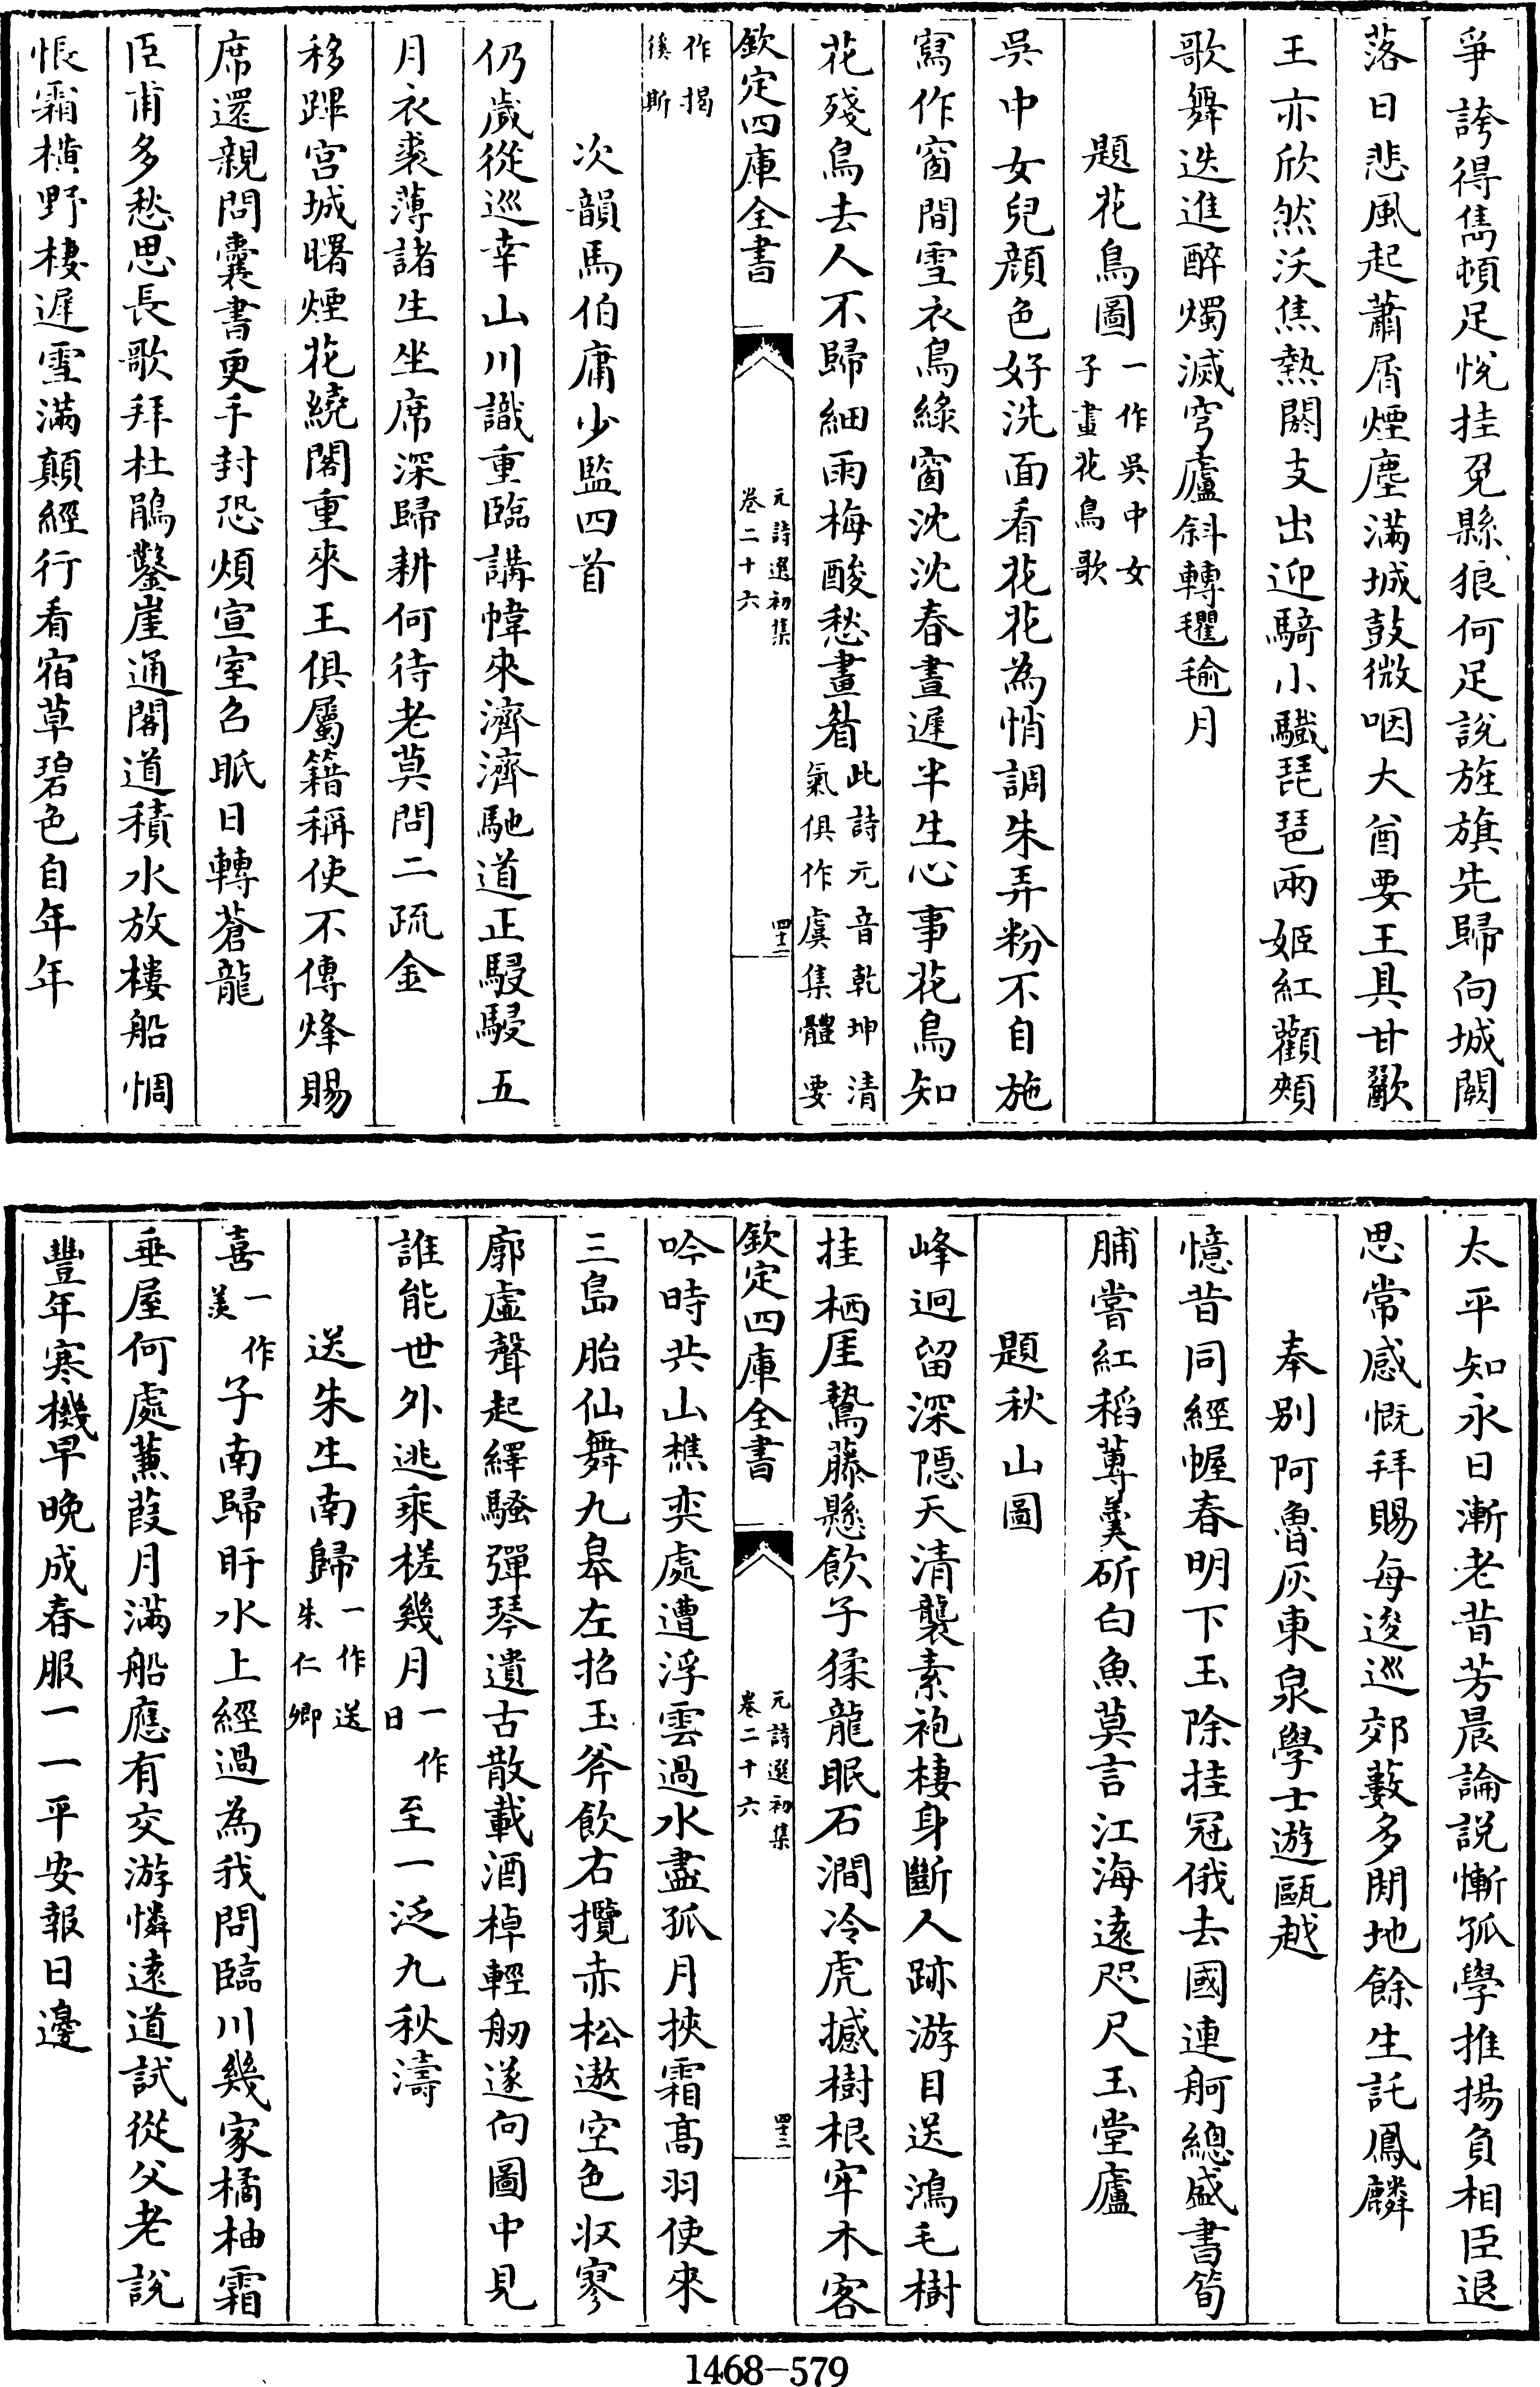 爭誇得雋頓足悅挂兔縣狼何足說旌旗先歸向城闕
落日悲風起蕭屑煙塵滿城鼓微咽大酋要王具甘歠
王亦欣然沃焦熱閼支出迎騎小驖琵琶兩姬紅顴頰
歌舞迭進醉燭滅穹廬斜轉氍毹月
題花鳥圖一作吳中女子畫花鳥歌
吳中女兒顔色好洗面看花花為悄調朱弄粉不自施
寫作窗間雪衣鳥綠窗沈沈春晝遲半生心事花鳥知
花殘鳥去人不歸細雨梅酸愁畫眉此詩元音乾坤清氣俱作虞集體要
欽定四庫全書 元詩選初集卷二十六 四十二
作揭傒斯
次韻馬伯庸少監四首
仍歲從巡幸山川識重臨講幃來濟濟馳道正駸駸五
月衣裘薄諸生坐席深歸耕何待老莫問二疏金
移蹕宫城曙煙花繞閣重來王俱屬籍稱使不傳烽賜
席還親問囊書更手封恐煩宣室召眡日轉蒼龍
臣甫多愁思長歌拜杜鵑鑿崖通閣道積水放樓船惆
悵霜橫野棲遲雪滿顛經行看宿草碧色自年年
太平知永日漸老昔芳晨論說慚孤學推揚負相臣退
思常感慨拜賜每逡巡郊藪多閒地餘生託鳳麟
奉別阿魯灰東泉學士遊甌越
憶昔同經幄春明下玉除挂冠俄去國連舸總盛書筍
脯嘗紅稻蓴羹斫白魚莫言江海遠咫尺玉堂廬
題秋山圖
峰迥留深隱天清襲素袍棲身斷人跡游目送鴻毛樹
挂栖厓鷙藤懸飲子猱龍眠石澗冷虎撼樹根牢木客
欽定四庫全書 元詩選初集卷二十六 四十三
吟時共山樵奕處遭浮雲過水盡孤月挾霜高羽使來
三島胎仙舞九皋左招玉斧飲右攬赤松遨空色収寥
廓虛聲起繹騷彈琴遺古散載酒棹輕舠遂向圖中見
誰能世外逃乘槎幾月一作日至一泛九秋濤
送朱生南歸一作送朱仁卿
喜一作羨子南歸盱水上經過為我問臨川幾家橘柚霜
垂屋何處蒹葭月滿船應有交游憐遠道試從父老說
豐年寒機早晚成春服一一平安報日邊
1468-579